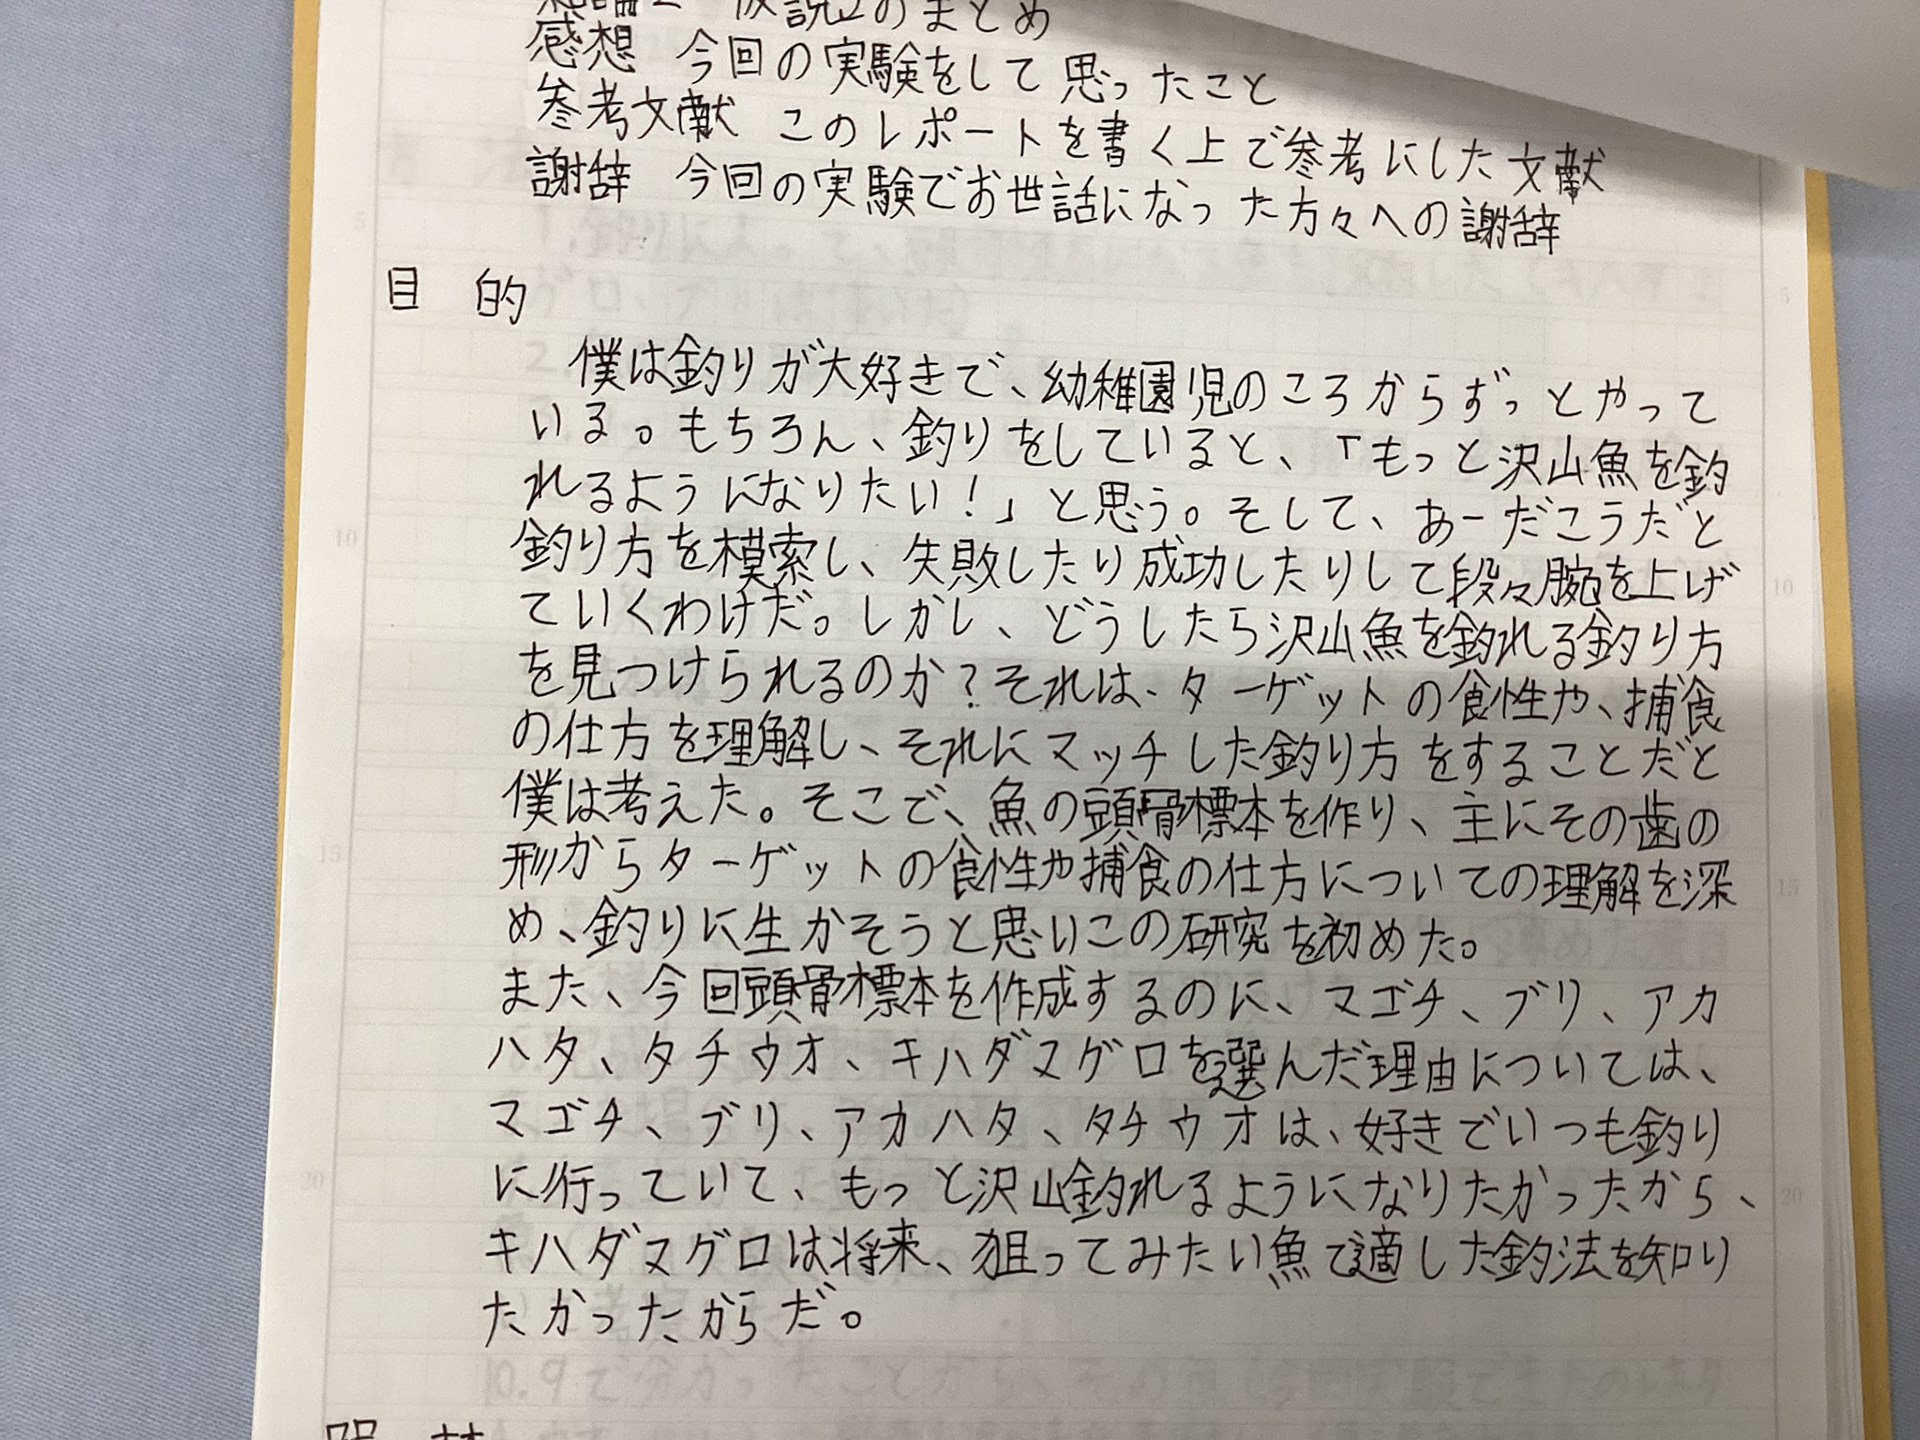 のまとめ
感想 今回の実験をして思ったこと
参考文献 このレポートを書く上で参考にした文献
謝辞 今回の実験でお世話になった方々への謝辞
目 的
僕は釣りが大好きで、幼稚園児のころからずっとやって
いる。もちろん、釣りをしていると、「もっと沢山魚を釣
れるようになりたい!」と思う。そして、あーだこうだと
釣り方を模索し、失敗したり成功したりして段々腕を上げ
ていくわけだ。しかし、どうしたら沢山魚を釣れる釣り方
を見つけられるのか?それは、ターゲットの食性や、捕食
の仕方を理解し、それにマッチした釣り方をすることだと
僕は考えた。そこで、魚の頭骨標本を作り、主にその歯の
形からターゲットの食性や捕食の仕方についての理解を深
め、釣りに生かそうと思いこの研究を初めた。
また、今回頭骨標本を作成するのに、マゴチ、ブリ、アカ
ハタ、タチウオ、キハダマグロを選んだ理由については、
マゴチ、ブリ、アカハタ、タチウオは、好きでいつも釣り
に行っていて、もっと沢山釣れるようになりたかったから、
キハダマグロは将来、狙ってみたい魚で適した釣法を知り
たかったからだ。